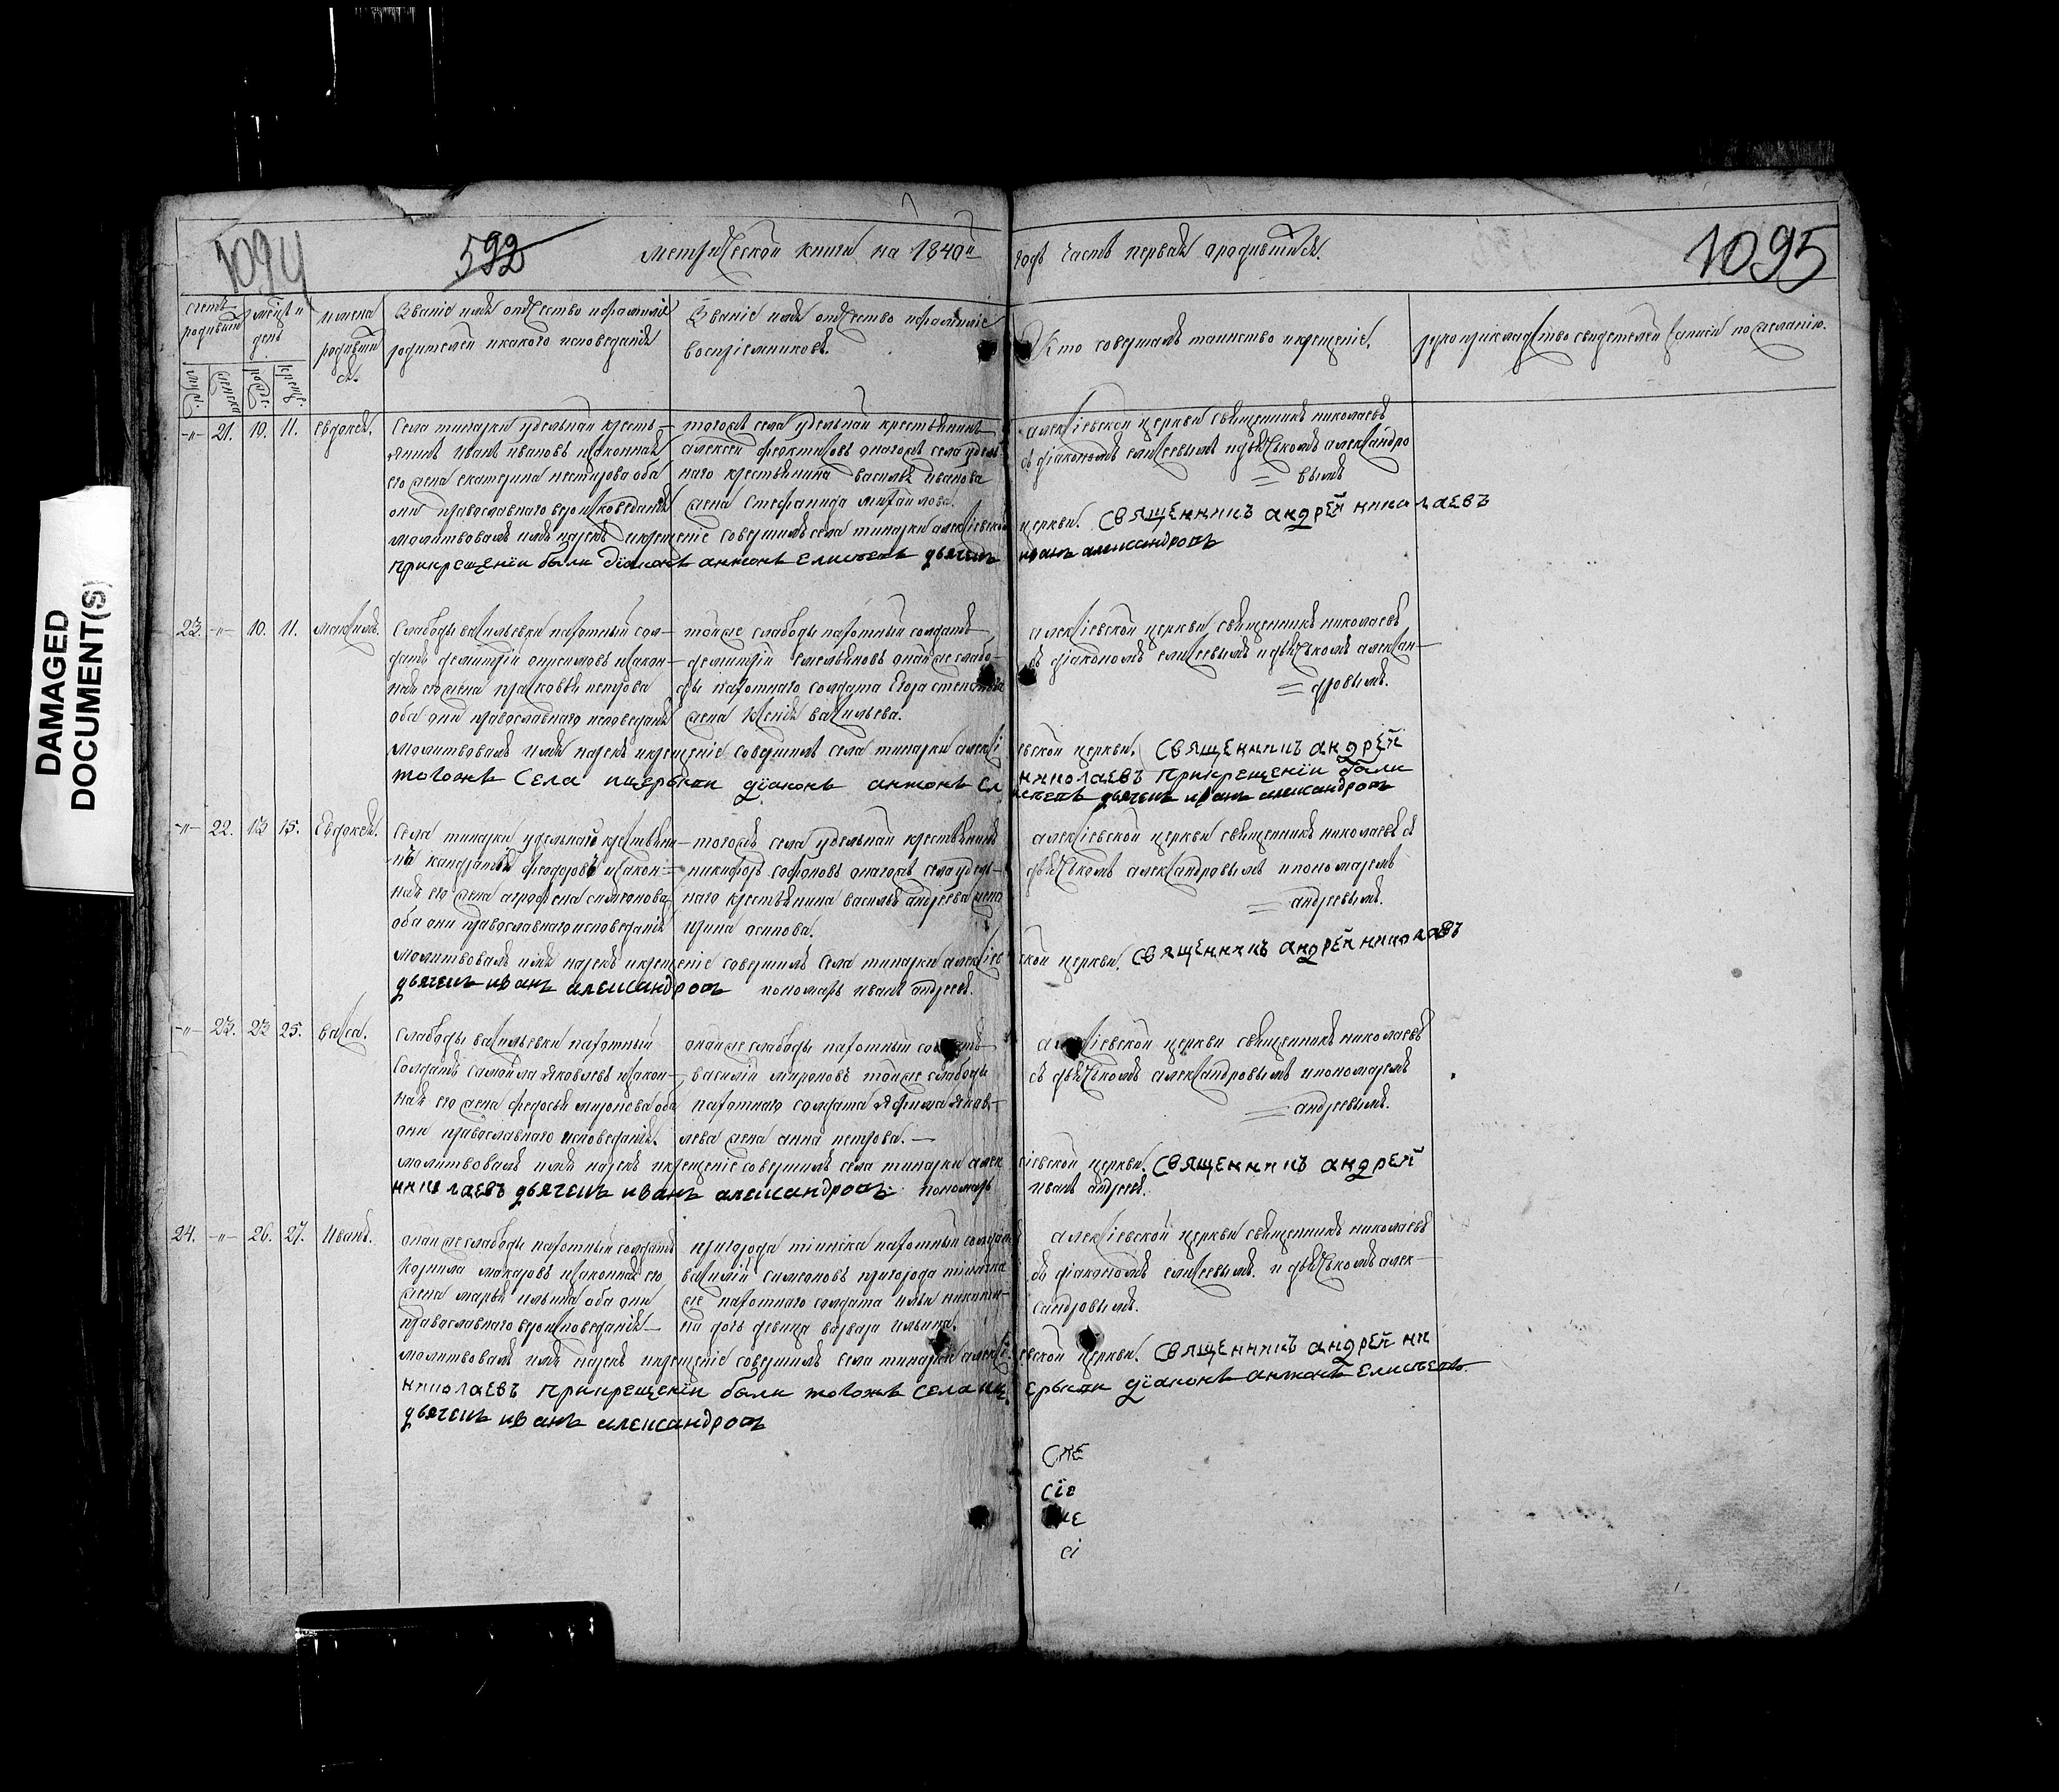 DAMAGED
DOCUMENT(S)
1094
592
метрической книги на 1840й годъ часть первая ородившихся.
1095
счетъ родивши
месяцъ и день
имена родивши ся.
Званіе имя отчество ифамилія родителей икакого исповеданія
Званіе имя отчество ифамилія воспріемниковъ.
Кто совершалъ таинство крещеніе.
рукоприкладство свидетелей записи по желанію.
-"- 21. 10. 11. Евдокея.
Села тинарки удельнай кресть-
янинъ иванъ ивановъ изаконная
его жена екатерина нестирова оба
они православнаго вероисповеданія
тогожъ села удельнай крестьянинъ
алексей феоктисовъ онагожъ села удель
наго крестьянина василья иванова
жена Стефанида михайлова.
алексіевской церкви священникъ николаевъ
съ діакономъ елисеевымъ идьячкомъ александро
= вымъ
молитвовалъ имя нарекъ икрещеніе совершилъ села тинарки алексіевской церкви. священникъ андрей николаевъ
прикрещеніи были діаконъ антонъ елисеевъ дьячекъ иванъ александровъ
23. -"- 10. 11. максимъ.
Слабоды васильевки пахотный сол-
датъ демитрій онисимовъ изакон-
ная его жена прасковья петрова
оба они православнаго исповеданія
тойже слабоды пахотный солдатъ
демитрій емельяновъ онайже слабо-
ды пахотнаго солдата Егора степанова
жена Ксенія васильева.
алексіевской церкви священникъ николаевъ
съ діакономъ елисеевымъ идьячкомъ алексан-
= дровымъ.
молитвовалъ имя нарекъ икрещеніе совершилъ села тинарки алексіевской церкви. священникъ андрей
николаевъ прикрещеніи были
тогожъ села церькви діаконъ антонъ елисеевъ дьячекъ иванъ александровъ
-"- 22. 13 15. Евдокея.
Села тинарки удельнаго крестьяни-
нъ кандратій феодоровъ изакон-
ная его жена агрофена симеонова
оба они православнаго исповеданія
тогожъ села удельнай крестьянинъ
никифоръ софоновъ онагожъ села удель-
наго крестьянина василья андреева жена
ирина осипова.
алексіевской церкви священникъ николаевъ съ
дьячкомъ александровымъ ипономаремъ
= андреевымъ.
молитвовалъ имя нарекъ икрещеніе совершилъ села тинарки алексіевской церкви. священникъ андрей николаевъ
дьячекъ иванъ александровъ пономарь иванъ андреевъ.
-"- 23. 23 25. васса.
слабоды васильевки пахотный
солдатъ самойла яковлевъ изакон-
ная его жена федосья миронова оба
они православнаго исповеданія.
онайже слабоды пахотный солдатъ
василій мироновъ тойже слабоды
пахотнаго солдата яфима яков-
лева жена анна петрова.
алексіевской церкви священникъ николаевъ
съ дьячкомъ александровымъ ипономаремъ
= андреевымъ.
молитвовалъ имя нарекъ икрещеніе совершилъ села тинарки алексіевской церкви. священникъ андрей
николаевъ дьячекъ иванъ александровъ пономарь иванъ андреевъ.
24. -"- 26. 27. Иванъ.
онайже слабоды пахотный солдатъ
корнила макаровъ изаконная его
жена марья ильина оба они
православнаго вероисповеданія
пригорода тіинска пахотный солдатъ
василій симеоновъ пригорода тіинска
же пахотнаго солдата ильи никити-
на дочь девица варвара ильина.
алексіевской церкви священникъ николаевъ
съ діакономъ елисеевымъ. и дьячкомъ алек-
сандровымъ.
молитвовалъ имя нарекъ икрещеніе совершилъ села тинарки алексіевской церкви. священникъ андрей ни
николаевъ прикрещеніи были тогожъ села церькви діаконъ антонъ елисеевъ.
дьячекъ иванъ александровъ
сіе
сі